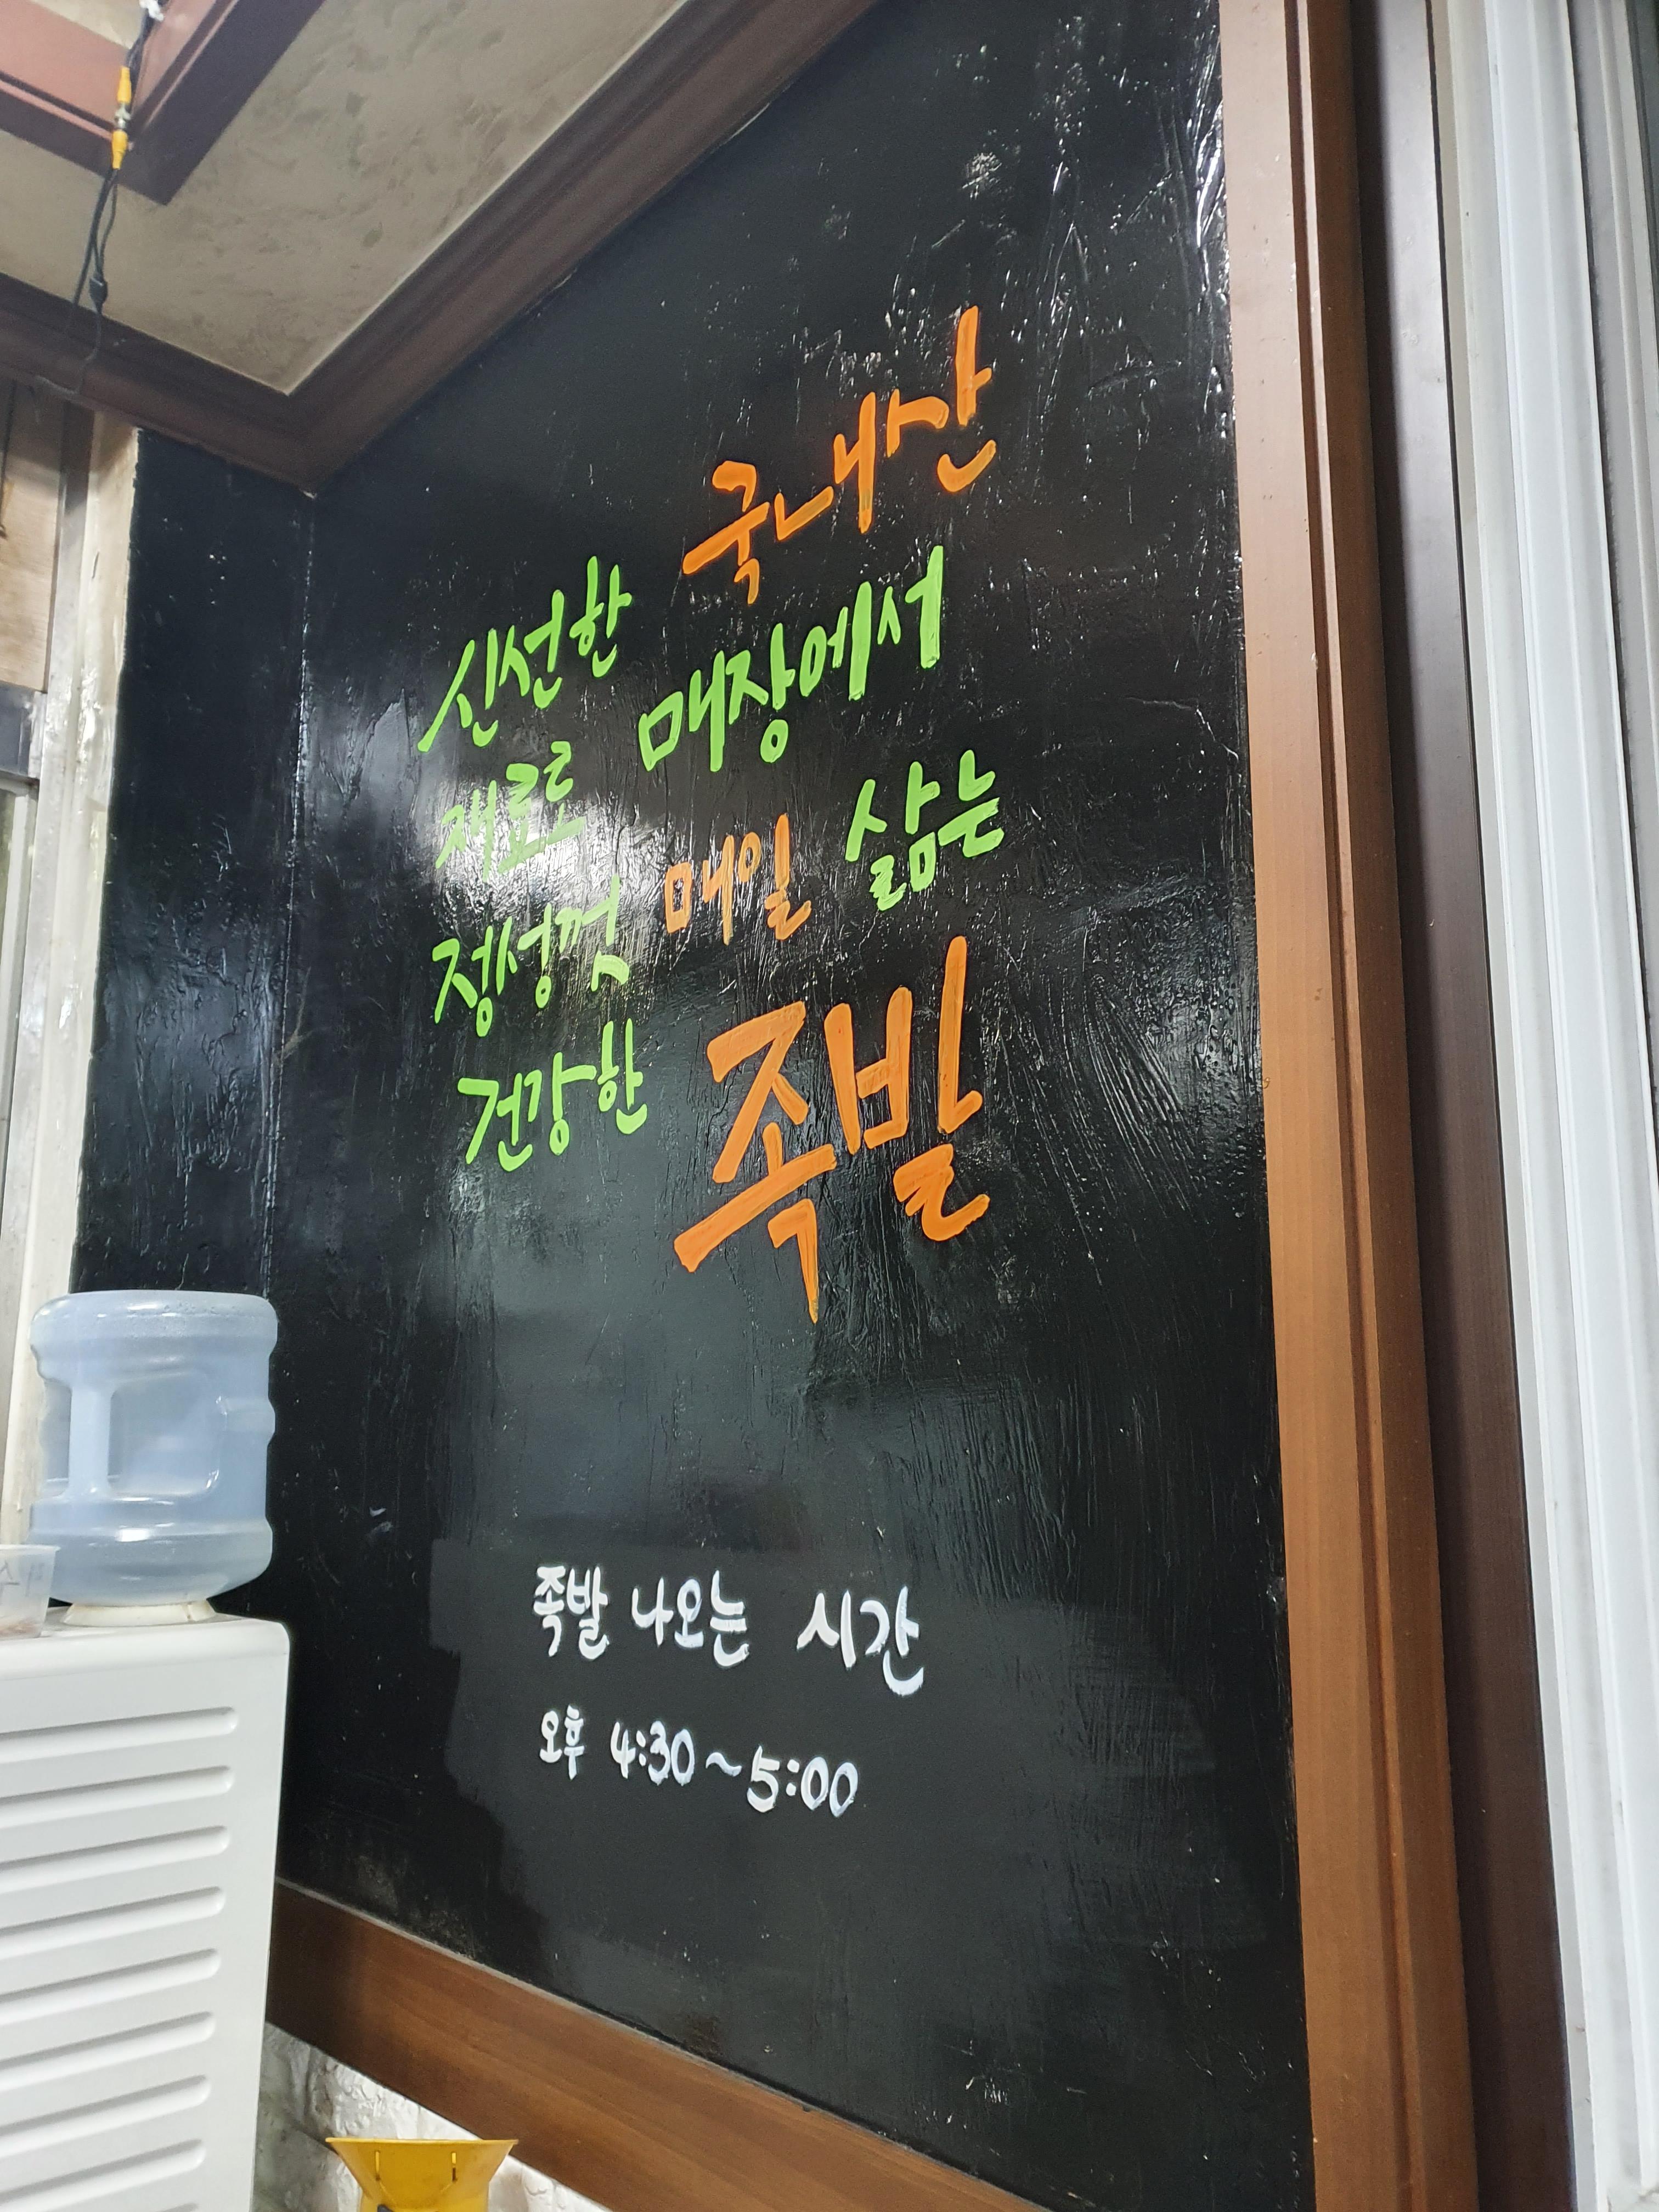 신선한 국내산
재료로 매장에서
정성껏 매일 삶는
건강한 족발
족발 나오는 시간
오후 4:30~5:00